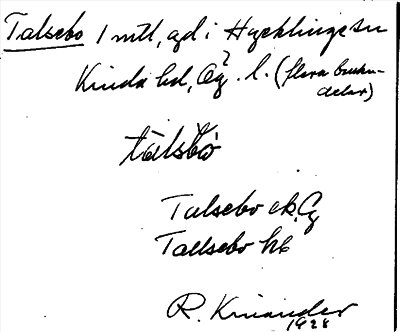 Talsebo 1 mtl, gd i Hycklinge sn
Kinda hd, Ög. l. (flera bruksdelar)
tàlsbò
Talsebo ek. Ög
Tallsebo hk
R. Kinander
1928